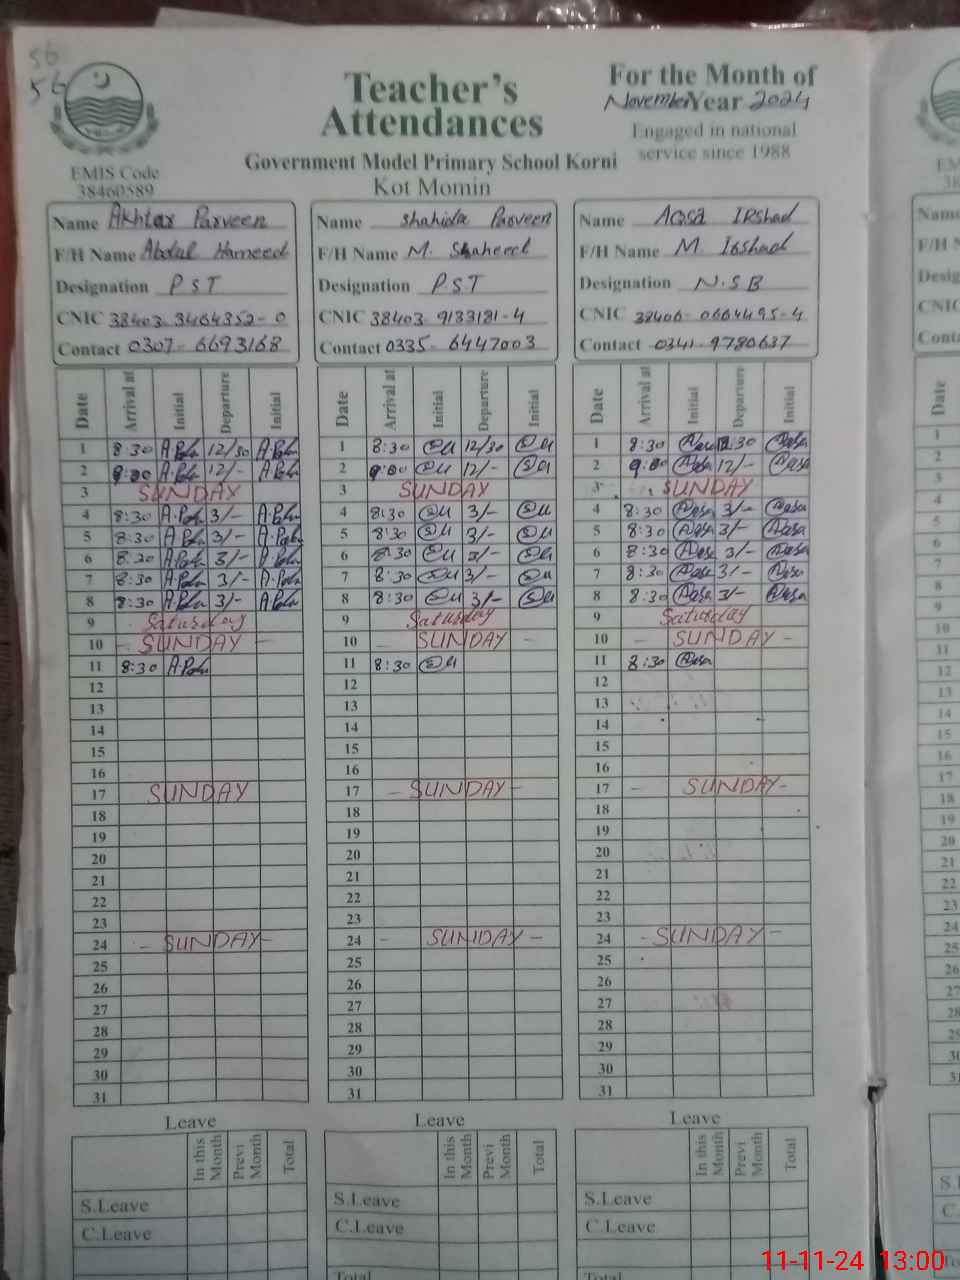 56
56
Teacher's
Attendances
For the Month of
November Year 2024
Engaged in national
service since 1988
EMIS Code
38460589
Government Model Primary School Korni
Kot Momin
Name Akhtar Parveen
F/H Name Abdul Hameed
Designation PST
CNIC 38403-3464352-0
Contact 0307-6693168
Name Shahida Parveen
F/H Name M. Shaheed
Designation PST
CNIC 38403-9133181-4
Contact 0335-6447003
Name Aqsa Irshad
F/H Name M. Irshad
Designation N.S.B
CNIC 38406-0664495-4
Contact 0341-9780637
Date Arrival at Initial Departure Initial
1 8:30 12/30
2 9:00 12/-
3 SUNDAY
4 8:30 3/-
5 8:30 3/-
6 8:30 3/-
7 8:30 3/-
8 8:30 3/-
9 Saturday
10 - SUNDAY -
11 8:30
12
13
14
15
16
17 SUNDAY
18
19
20
21
22
23
24 - SUNDAY -
25
26
27
28
29
30
31
Date Arrival at Initial Departure Initial
1 8:30 12/30
2 9:00 12/-
3 SUNDAY
4 8:30 3/-
5 8:30 3/-
6 8:30 3/-
7 8:30 3/-
8 8:30 3/-
9 Saturday
10 - SUNDAY -
11 8:30
12
13
14
15
16
17 - SUNDAY -
18
19
20
21
22
23
24 - SUNDAY -
25
26
27
28
29
30
31
Date Arrival at Initial Departure Initial
1 8:30 12:30
2 9:00 12/-
3 SUNDAY
4 8:30 3/-
5 8:30 3/-
6 8:30 3/-
7 8:30 3/-
8 8:30 3/-
9 Saturday
10 - SUNDAY -
11 8:30
12
13
14
15
16
17 - SUNDAY -
18
19
20
21
22
23
24 - SUNDAY -
25
26
27
28
29
30
31
Leave
In this Month Previ Month Total
S.Leave
C.Leave
Leave
In this Month Previ Month Total
S.Leave
C.Leave
Total
Leave
In this Month Previ Month Total
S.Leave
C.Leave
Total
11-11-24 13:00